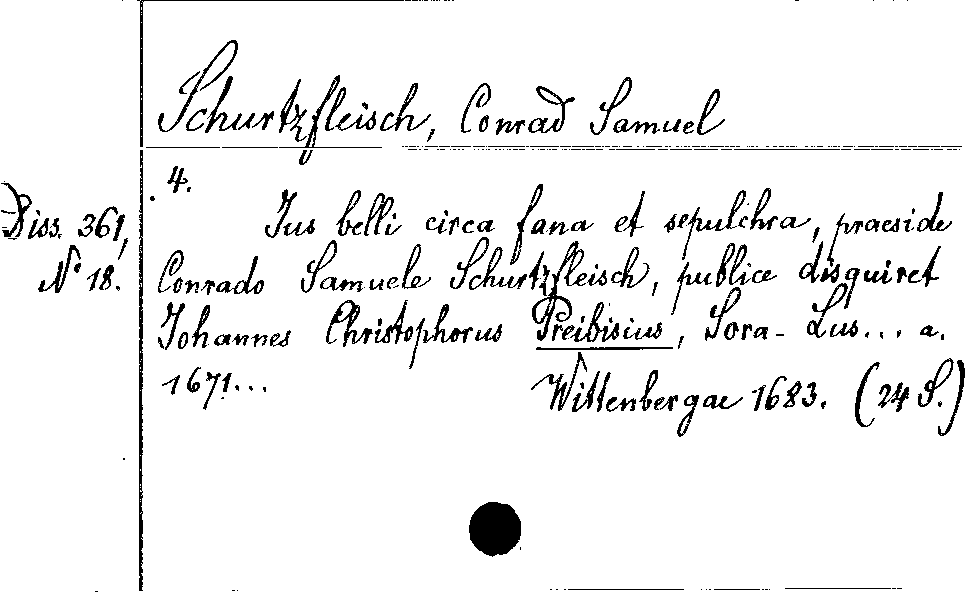 Schurtzfleisch, Conrad Samuel
4.
Diss. 361,
N° 18.
Jus belli circa fana et sepulchra, praeside
Conrado Samuele Schurtzfleisch, publice disquiret
Johannes Christophorus Preibisius, Sora-Lus... a.
1671...
Wittenbergae 1683. (24 S.)